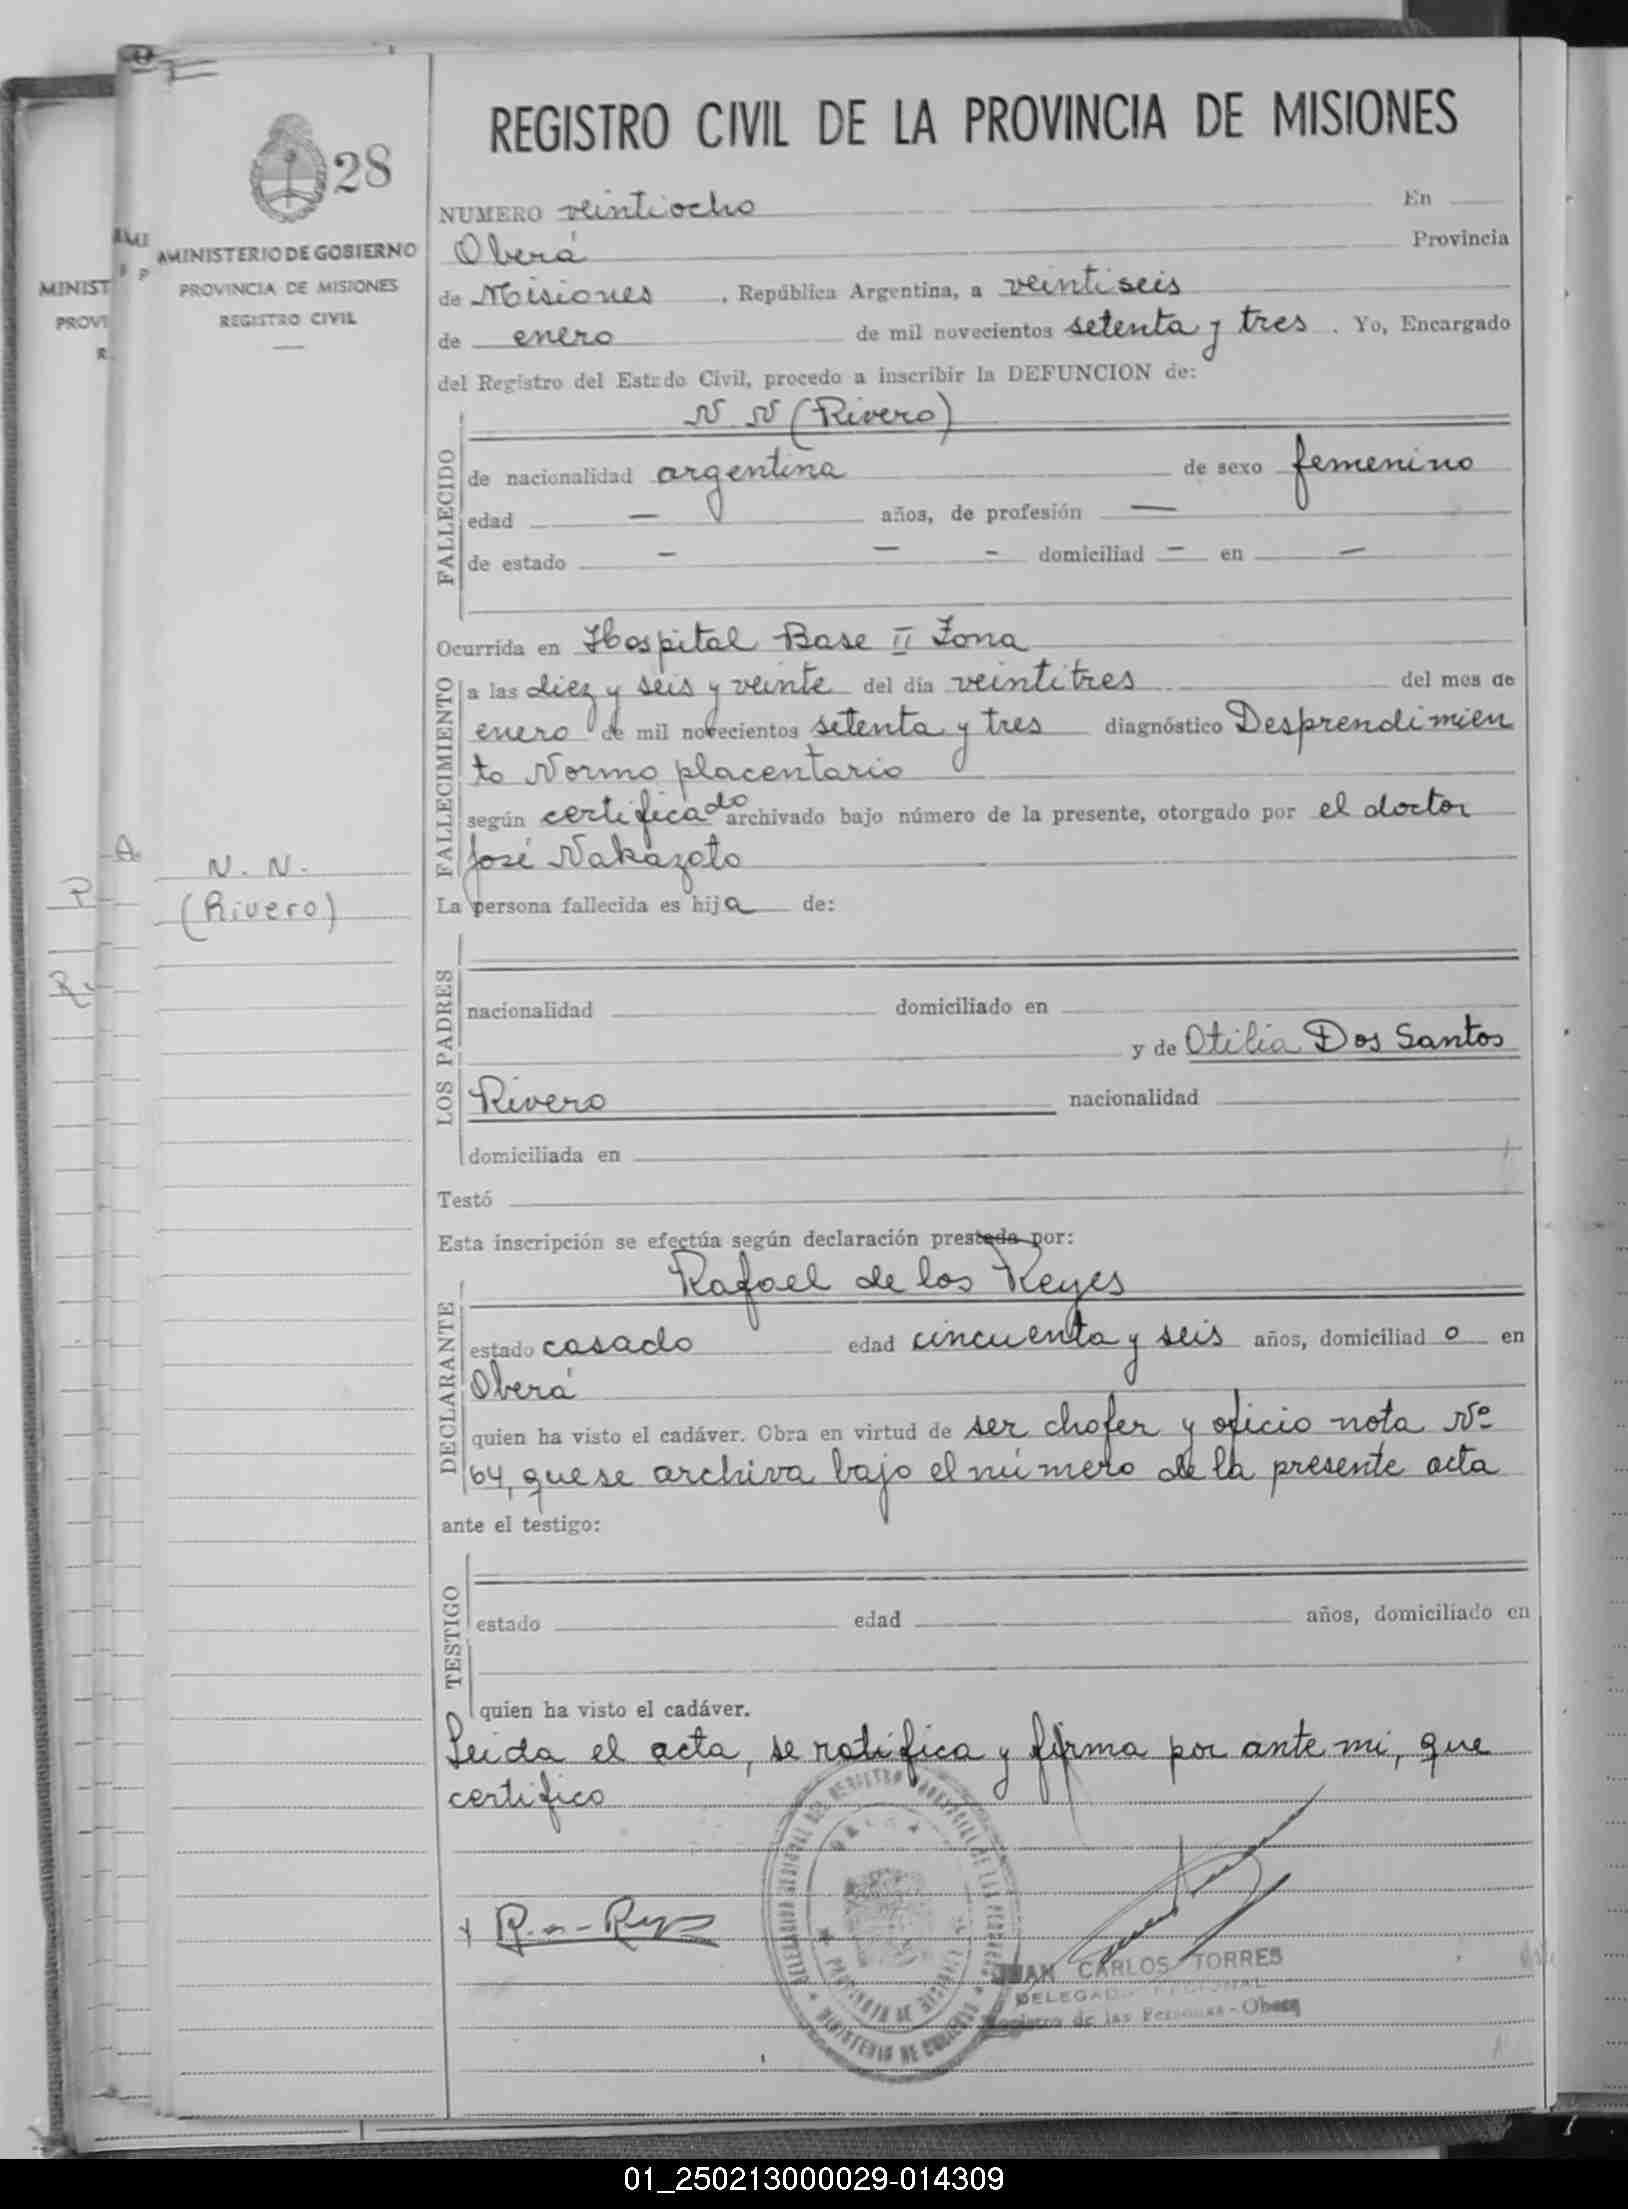 28
MINISTERIO DE GOBIERNO
PROVINCIA DE MISIONES
REGISTRO CIVIL
MINIST
PROVI
R.
N. N.
(Rivero)
REGISTRO CIVIL DE LA PROVINCIA DE MISIONES
NUMERO veintiocho En
Oberá Provincia
de Misiones , República Argentina, a veintiseis
de enero de mil novecientos setenta y tres . Yo, Encargado
del Registro del Estado Civil, procedo a inscribir la DEFUNCION de:
FALLECIDO
N N (Rivero)
de nacionalidad argentina de sexo femenino
edad — años, de profesión —
de estado — — - domiciliad — en —
Ocurrida en Hospital Base II Zona
FALLECIMIENTO
a las diez y seis y veinte del día veintitres del mes de
enero de mil novecientos setenta y tres diagnóstico Desprendimien
to Normo placentario
según certificado archivado bajo número de la presente, otorgado por el doctor
José Nakazato
La persona fallecida es hija de:
LOS PADRES
nacionalidad domiciliado en
y de Otilia Dos Santos
Rivero nacionalidad
domiciliada en
Testó
Esta inscripción se efectúa según declaración prestada por:
DECLARANTE
Rafael de los Reyes
estado casado edad cincuenta y seis años, domiciliad o en
Oberá
quien ha visto el cadáver. Obra en virtud de ser chofer y oficio nota Nº
64, que se archiva bajo el número de la presente acta
ante el testigo:
TESTIGO
estado edad años, domiciliado en
quien ha visto el cadáver.
Leida el acta, se ratifica y firma por ante mi, que
certifico
JUAN CARLOS TORRES
DELEGADO REGIONAL
Registro de las Personas - Obera
01_250213000029-014309